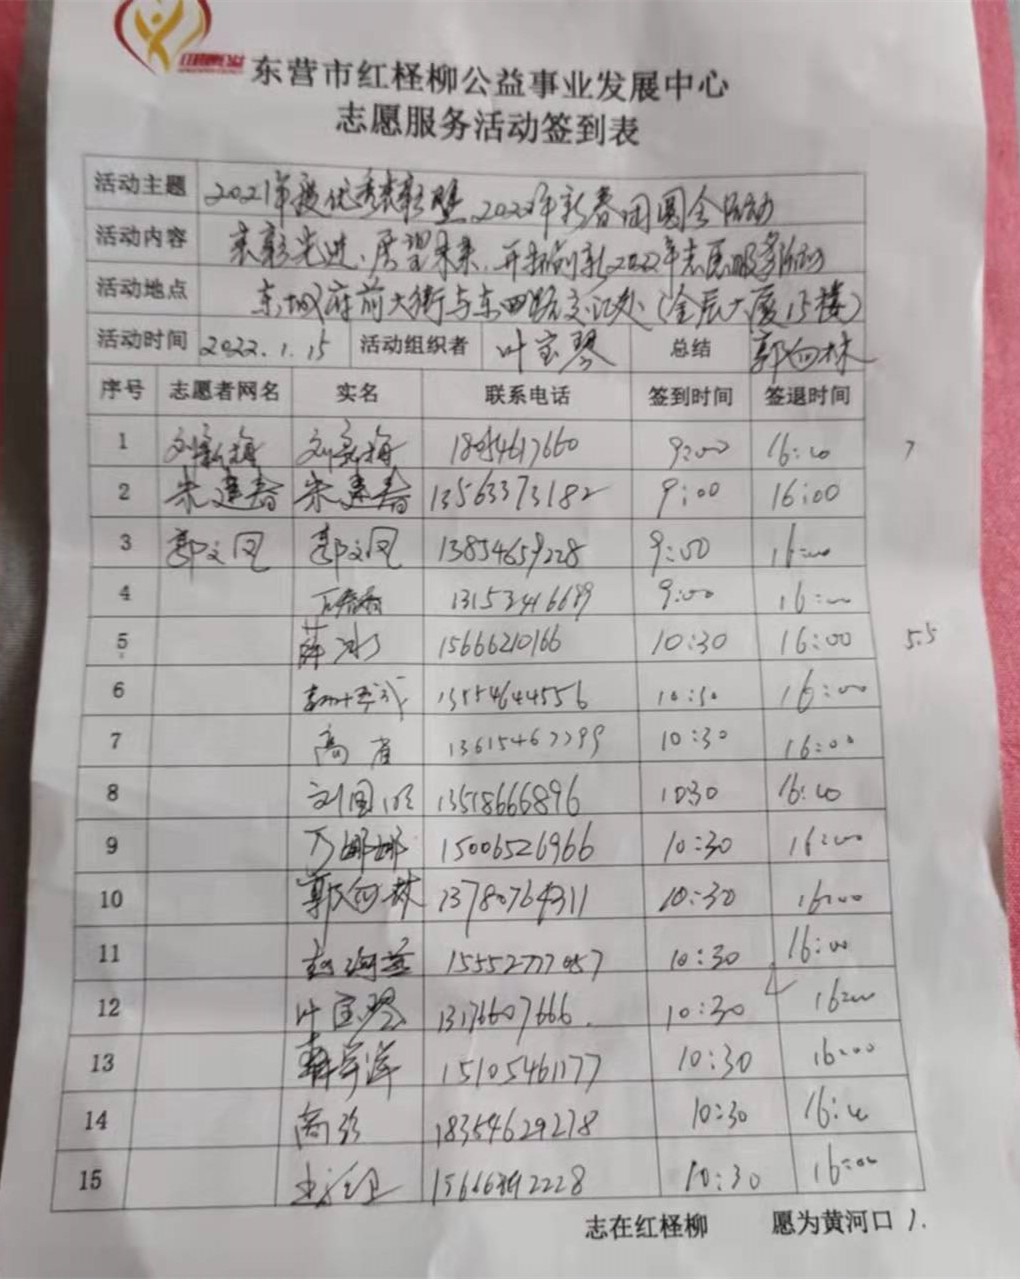 东营市红柽柳公益事业发展中心
志愿服务活动签到表
活动主题 2021年度优秀表彰暨2022年新春团圆会活动
活动内容 表彰先进、展望未来、开拓创新2022年志愿服务活动
活动地点 东城府前大街与东四路交汇处(金辰大厦15楼)
活动时间 2022.1.15 活动组织者 叶宝琴 总结 郭向林
序号 志愿者网名 实名 联系电话 签到时间 签退时间
1 刘新梅 刘新梅 18954617660 9:00 16:00 7
2 朱建春 朱建春 13563373182 9:00 16:00
3 郭文凤 郭文凤 13854659228 9:00 16:00
4 9:00 16:00
5 薛冰 15666210166 10:30 16:00 5.5
6 10:30 16:00
7 高 13615467799 10:30 16:00
8 刘国 13518666896 10:30 16:00
9 万娜娜 15006526966 10:30 16:00
10 郭向林 13780764311 10:30 16:00
11 赵海燕 15552777057 10:30 16:00
12 叶宝琴 13176607666. 10:30 16:00
13 韩学洋 15105461177 10:30 16:00
14 高 18354629278 10:30 16:00
15 10:30 16:00
志在红柽柳 愿为黄河口 1.